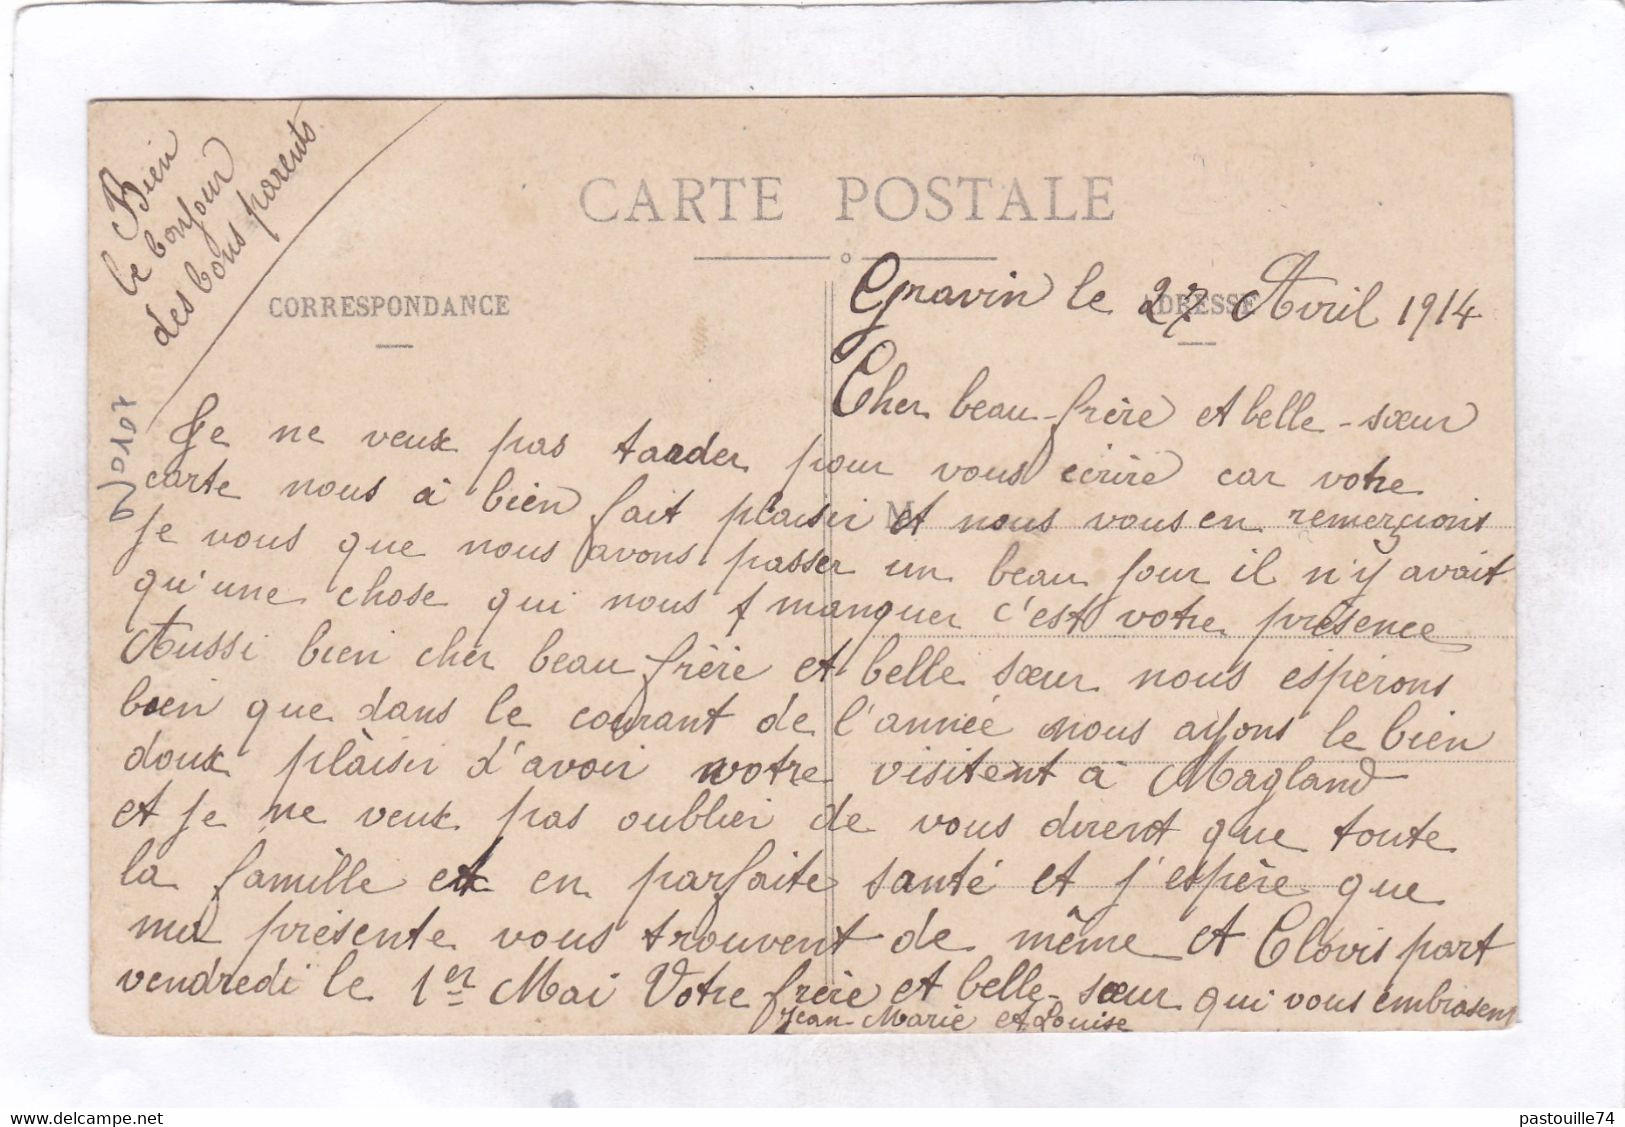 Bien
le bonjour
des bons parents
CARTE POSTALE
CORRESPONDANCE
ADRESSE
Gravin le 27 Avril 1914
Cher beau-frère et belle-sœur
Je ne veux pas tarder pour vous écrire car votre
carte nous à bien fait plaisir et nous vous en remerçions
je vous que nous avons passer un beau jour il n'y avait
qu'une chose qui nous manquer c'est votre présence
Aussi bien cher beau frère et belle sœur nous espérons
bien que dans le courant de l'année nous ayons le bien
doux plàisir d'avoir votre visitent à Magland
et je ne veux pas oublier de vous dirent que toute
la famille et en parfaite santé et j'espère que
ma présente vous trouvent de même et Clovis part
vendredi le 1er Mai Votre frère et belle-sœur qui vous embrasent
Jean-Marie et Louise
pastouille74